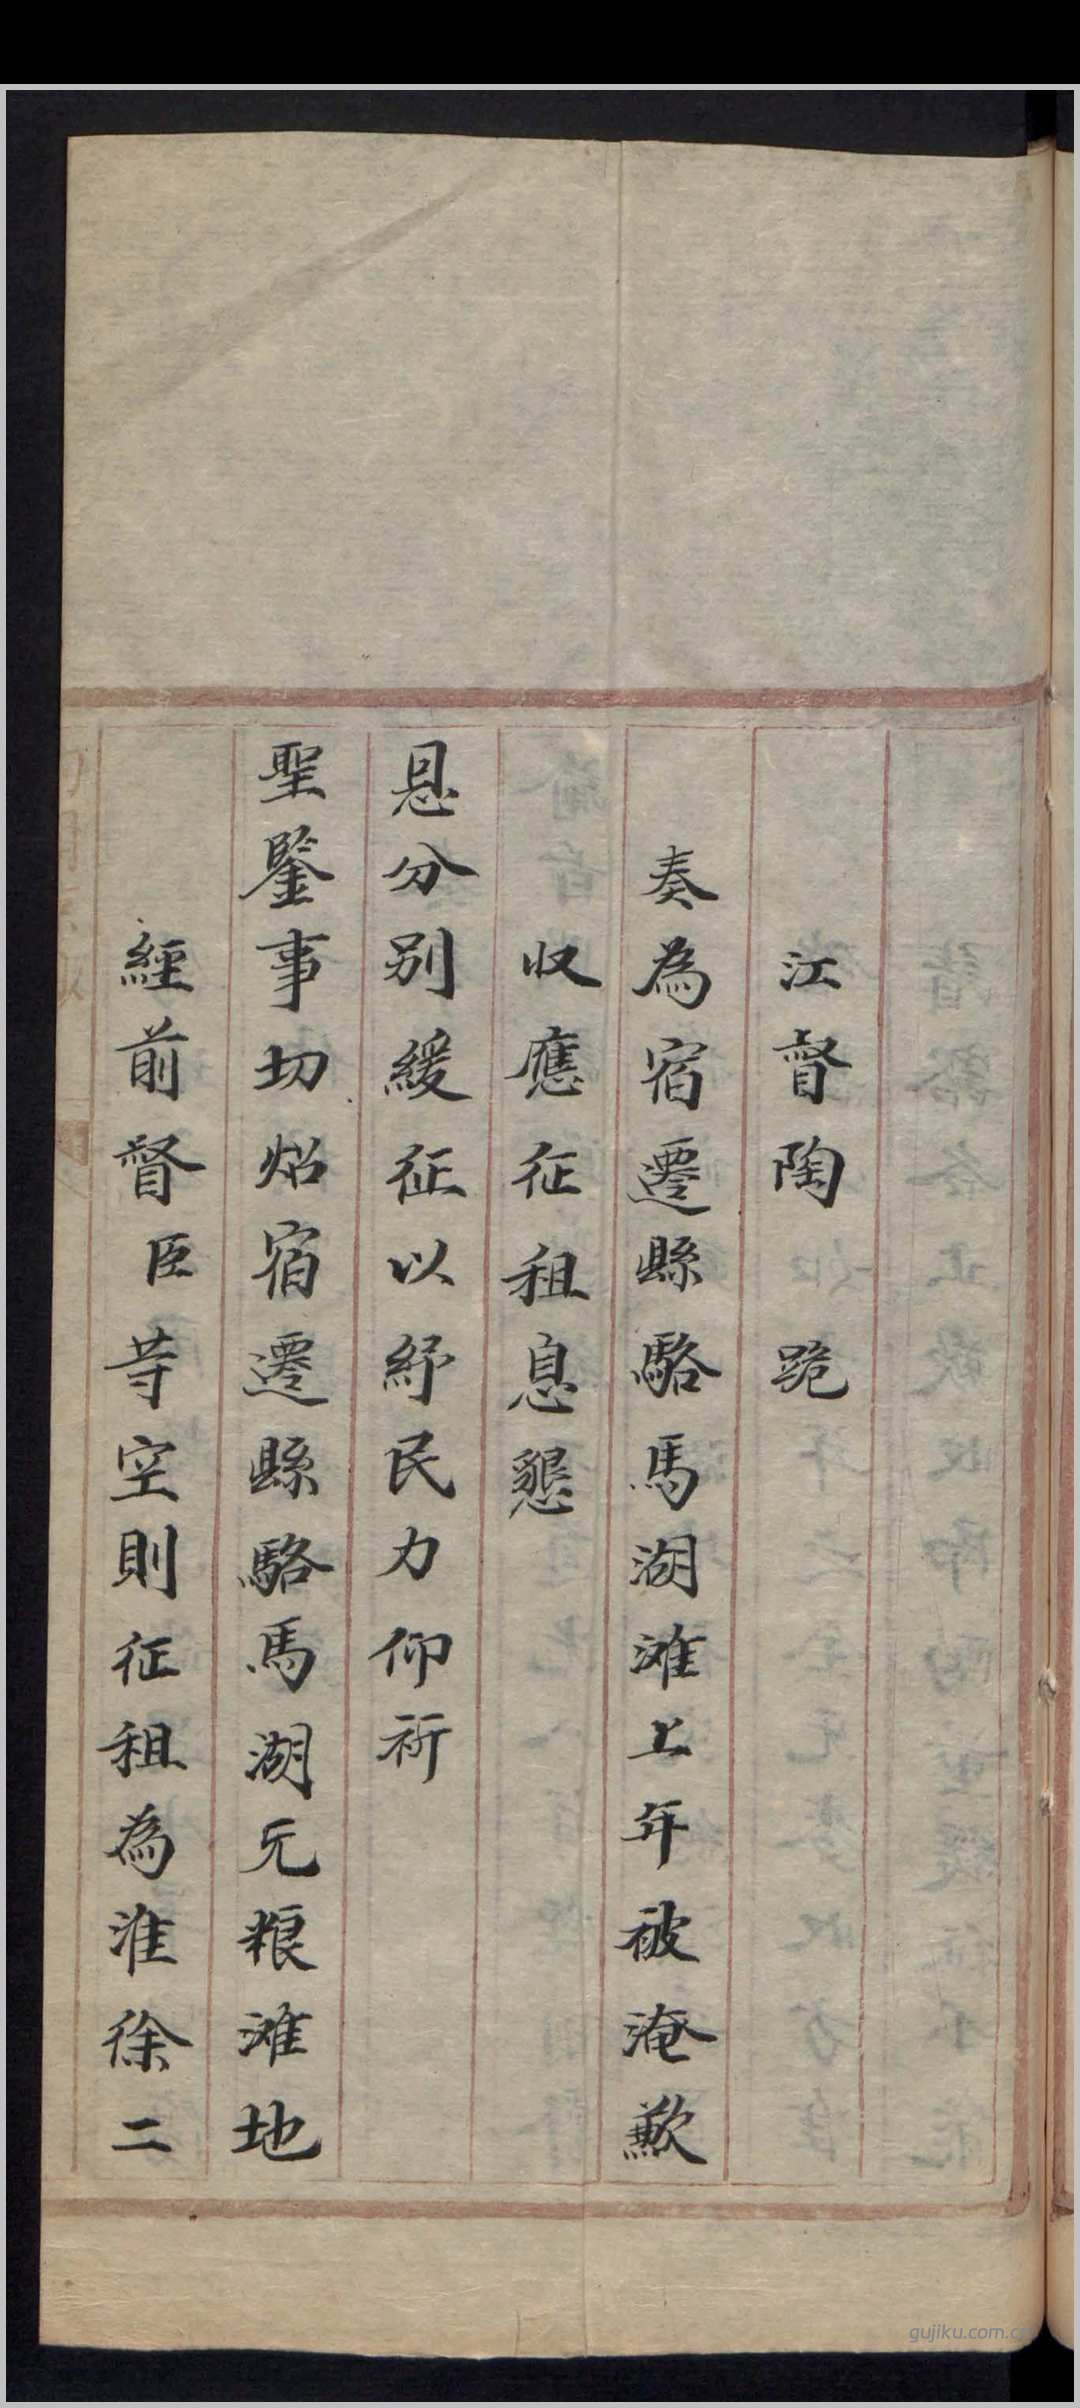 江督陶 跪
奏為宿遷縣駱馬湖滩上年被淹歉
收應征租息懇
恩分別緩征以紓民力仰祈
聖鑒事切炤宿遷縣駱馬湖无粮滩地
經前督臣等空則征租為淮徐二
gujiku.com.cn